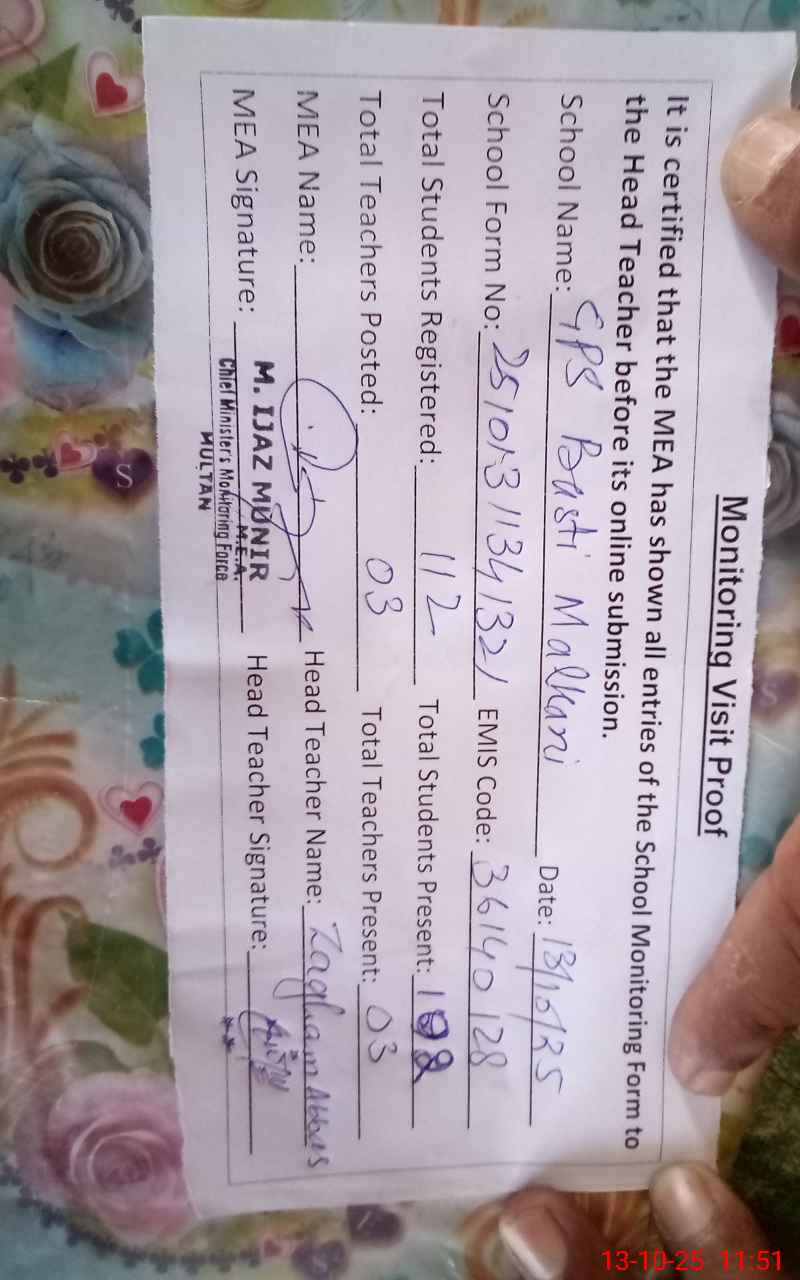 Monitoring Visit Proof
It is certified that the MEA has shown all entries of the School Monitoring Form to
the Head Teacher before its online submission.
School Name: GPS Basti Malkani Date: 13/10/25
School Form No: 251013113413 21 EMIS Code: 36140128
Total Students Registered: 112 Total Students Present: 102
Total Teachers Posted: 03 Total Teachers Present: 03
MEA Name: Head Teacher Name: Zargham Abbas
MEA Signature: Head Teacher Signature:
M. IJAZ MUNIR
M.E.A.
Chief Minister's Monitoring Force
MULTAN
13-10-25 11:51